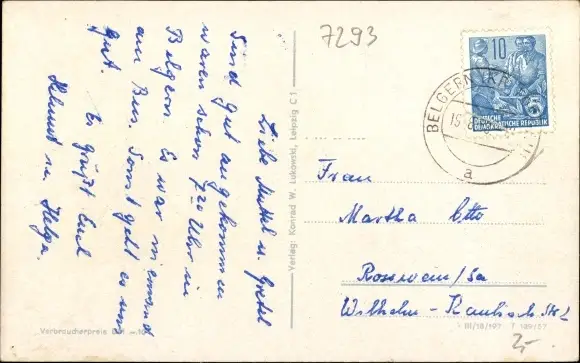 Liebe Muttel u. Gretel
Sind gut angekommen
waren schon 7 20 Uhr in
Belgern. Es war niemand
am Bus. Sonst geht es uns
gut.
Es grüßt Euch
Helmut u. Helga.
Verbraucherpreis DM
Verlag: Konrad W. Lukowski, Leipzig C 1
7293
10
DEUTSCHE
DEMOKRATISCHE REPUBLIK
BELGERN (KR
a
Frau
Martha Otto
Rosswein/Sa
Wilhelm-Kaulisch Str 2
III/18/197 F 189/57
2,-